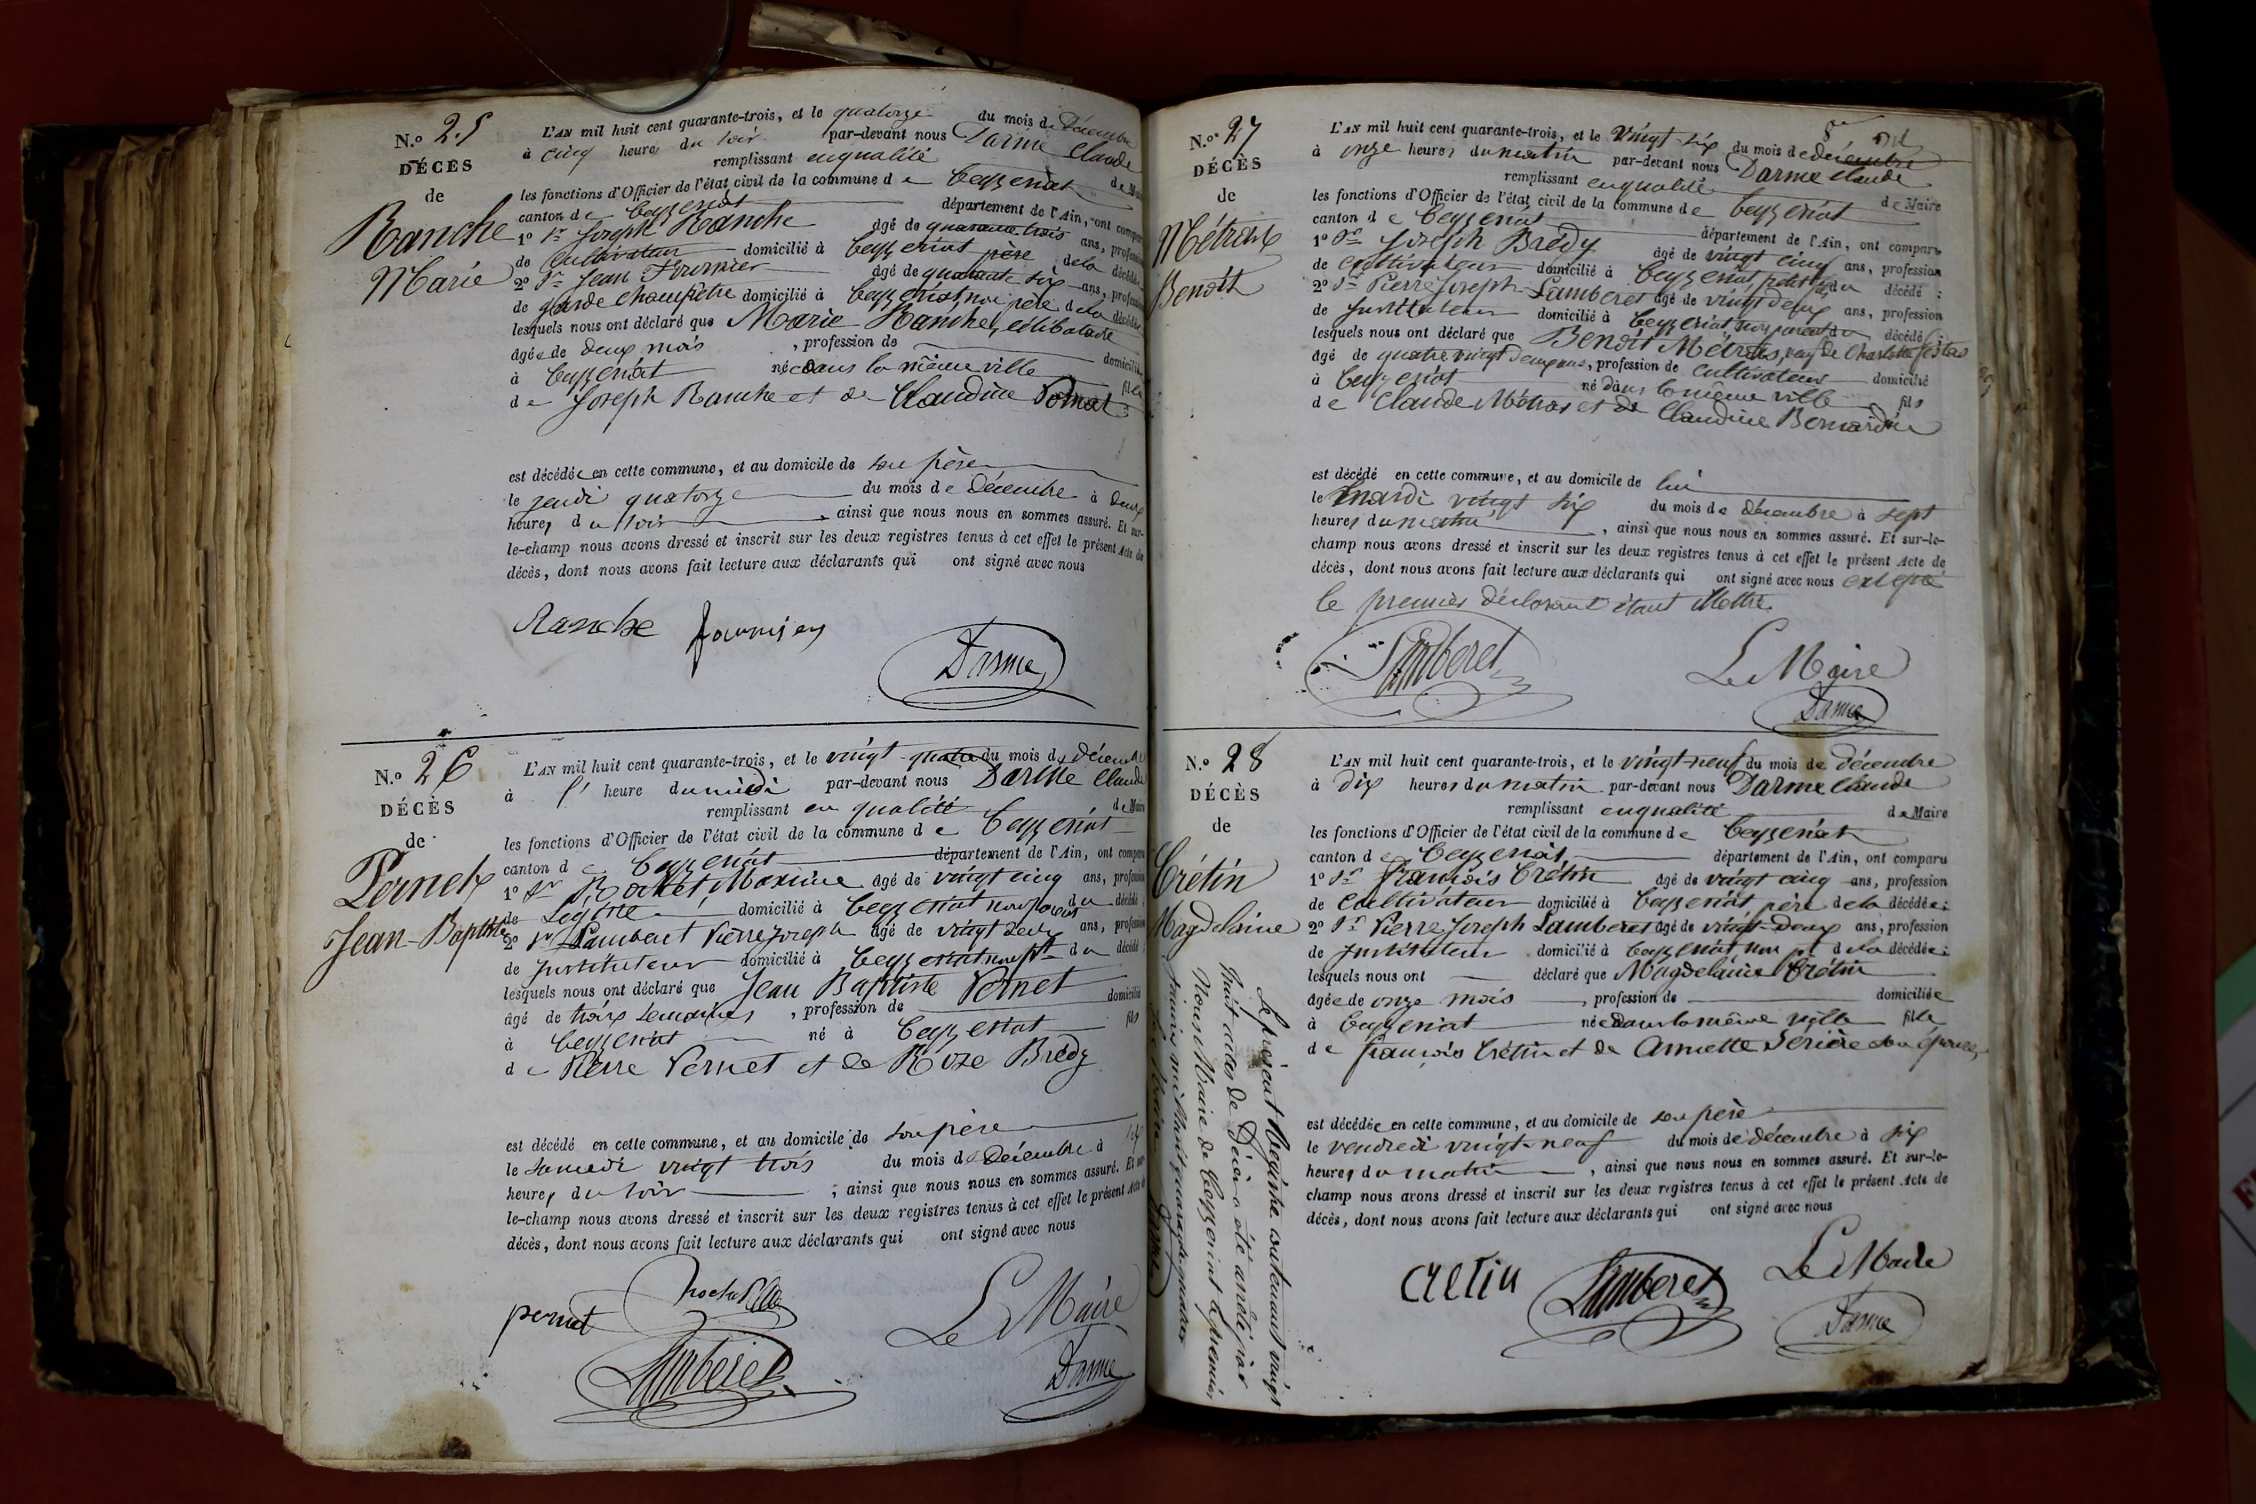 N.o 25
DÉCÈS
de
Ranche
Marie
L'AN mil huit cent quarante-trois, et le quatorze du mois de Décembre
à cinq heures du soir par-devant nous Darme Claude
remplissant en qualité de Maire
les fonctions d'Officier de l'état civil de la commune de Ceyzeriat
canton de Ceyzeriat département de l'Ain, ont comparu
1o Sr Joseph Ranche âgé de quarante trois ans, profession
de cultivateur domicilié à Ceyzeriat père de la décédée
2o Sr Jean Fournier âgé de quarante six ans, profession
de garde champêtre domicilié à Ceyzeriat, non père de la décédée
lesquels nous ont déclaré que Marie Ranche, célibataire
âgée de deux mois , profession de domiciliée
à Ceyzeriat née dans la même ville fille
de Joseph Ranche et de Claudine Pornat
est décédée en cette commune, et au domicile de son père
le jeudi quatorze du mois de Décembre à deux
heures du soir , ainsi que nous nous en sommes assuré. Et sur-
le-champ nous avons dressé et inscrit sur les deux registres tenus à cet effet le présent Acte de
décès, dont nous avons fait lecture aux déclarants qui ont signé avec nous
Ranche Fournier
Darme
N.o 26
DÉCÈS
de
Pernet
Jean-Baptiste
L'AN mil huit cent quarante-trois, et le vingt-quatre du mois de décembre
à l' heure du midi par-devant nous Darme Claude
remplissant en qualité de Maire
les fonctions d'Officier de l'état civil de la commune de Ceyzeriat
canton de Ceyzeriat département de l'Ain, ont comparu
1o Sr Rochet, Maxime âgé de vingt cinq ans, profession
de Légiste domicilié à Ceyzeriat non parent du décédé
2o Sr Lamberet Pierre Joseph âgé de vingt deux ans, profession
de Instituteur domicilié à Ceyzeriat non pt du décédé
lesquels nous ont déclaré que Jean Baptiste Pernet
âgé de trois semaines , profession de domicilié
à Ceyzeriat né à Ceyzeriat fils
de Pierre Pernet et de Roze Bredy
est décédé en cette commune, et au domicile de son père
le samedi vingt trois du mois de Décembre à
heures du soir , ainsi que nous nous en sommes assuré. Et sur-
le-champ nous avons dressé et inscrit sur les deux registres tenus à cet effet le présent Acte de
décès, dont nous avons fait lecture aux déclarants qui ont signé avec nous
pernet Rochet
Lamberet
Le Maire
Darme
N.o 27
DÉCÈS
de
Métras
Benoît
L'AN mil huit cent quarante-trois, et le vingt-six du mois de décembre
à onze heures du matin par-devant nous Darme Claude
remplissant en qualité de Maire
les fonctions d'Officier de l'état civil de la commune de Ceyzeriat
canton de Ceyzeriat département de l'Ain, ont comparu
1o Sr Joseph Brédy âgé de vingt cinq ans, profession
de cultivateur domicilié à Ceyzeriat petit fils du décédé ;
2o Sr Pierre Joseph Lamberet âgé de vingt deux ans, profession
de Instituteur domicilié à Ceyzeriat, non parent du décédé ;
lesquels nous ont déclaré que Benoît Métras, veuf de Charlotte
âgé de quatre vingt deux ans, profession de cultivateur domicilié
à Ceyzeriat né dans la même ville fils
de Claude Métras et de Claudine Bernardin
est décédé en cette commune, et au domicile de lui
le mardi vingt six du mois de décembre à sept
heures du matin , ainsi que nous nous en sommes assuré. Et sur-le-
champ nous avons dressé et inscrit sur les deux registres tenus à cet effet le présent Acte de
décès, dont nous avons fait lecture aux déclarants qui ont signé avec nous excepté
le premier déclarant étant illettré
Lamberet
Le Maire
Darme
N.o 28
DÉCÈS
de
Crétin
Magdelaine
L'AN mil huit cent quarante-trois, et le vingt-neuf du mois de décembre
à dix heures du matin par-devant nous Darme Claude
remplissant en qualité de Maire
les fonctions d'Officier de l'état civil de la commune de Ceyzeriat
canton de Ceyzeriat département de l'Ain, ont comparu
1o Sr François Crétin âgé de vingt cinq ans, profession
de cultivateur domicilié à Ceyzeriat père de la décédée ;
2o Sr Pierre Joseph Lamberet âgé de vingt-deux ans, profession
de Instituteur domicilié à Ceyzeriat, non pt de la décédée ;
lesquels nous ont déclaré que Magdelaine Crétin
âgée de onze mois , profession de domiciliée
à Ceyzeriat née dans la même ville fille
de François Crétin et de Annette Serière son épouse,
est décédée en cette commune, et au domicile de son père
le vendredi vingt-neuf du mois de décembre à six
heures du matin , ainsi que nous nous en sommes assuré. Et sur-le-
champ nous avons dressé et inscrit sur les deux registres tenus à cet effet le présent Acte de
décès, dont nous avons fait lecture aux déclarants qui ont signé avec nous
cretin Lamberet
Le Maire
Darme
Le présent Registre contenant vingt
huit actes de Décès a été arrêté par
Nous Maire de Ceyzeriat le premier
janvier mil huit quarante quatre
Le Maire Darme